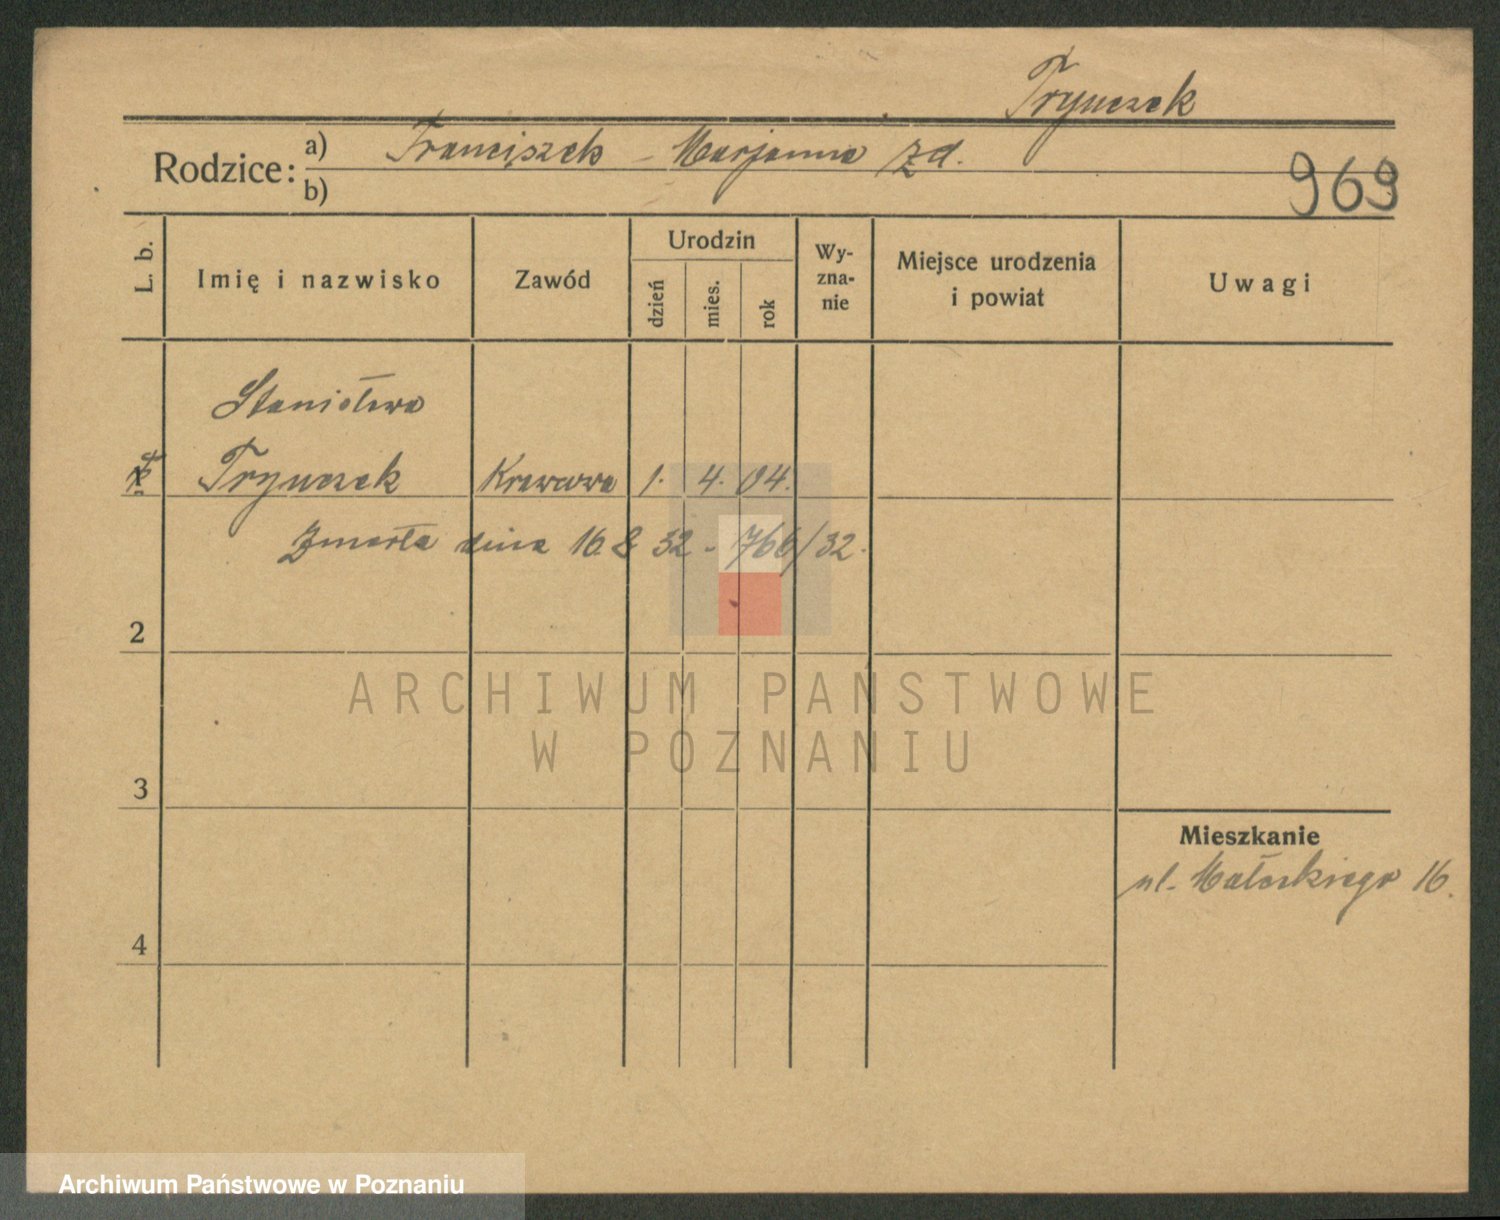 Trynczek
Rodzice: a) Franciszek - Marjanna zd.
b)
969
L. b.
Imię i nazwisko
Zawód
Urodzin
dzień
mies.
rok
Wy-
zna-
nie
Miejsce urodzenia
i powiat
Uwagi
Stanisława
1 Trynczek Krawcowa 1. 4. 04.
Zmarła dnia 16 8 32 - 766/32.
2
3
4
Mieszkanie
ul. 16.
ARCHIWUM PAŃSTWOWE
W POZNANIU
Archiwum Państwowe w Poznaniu